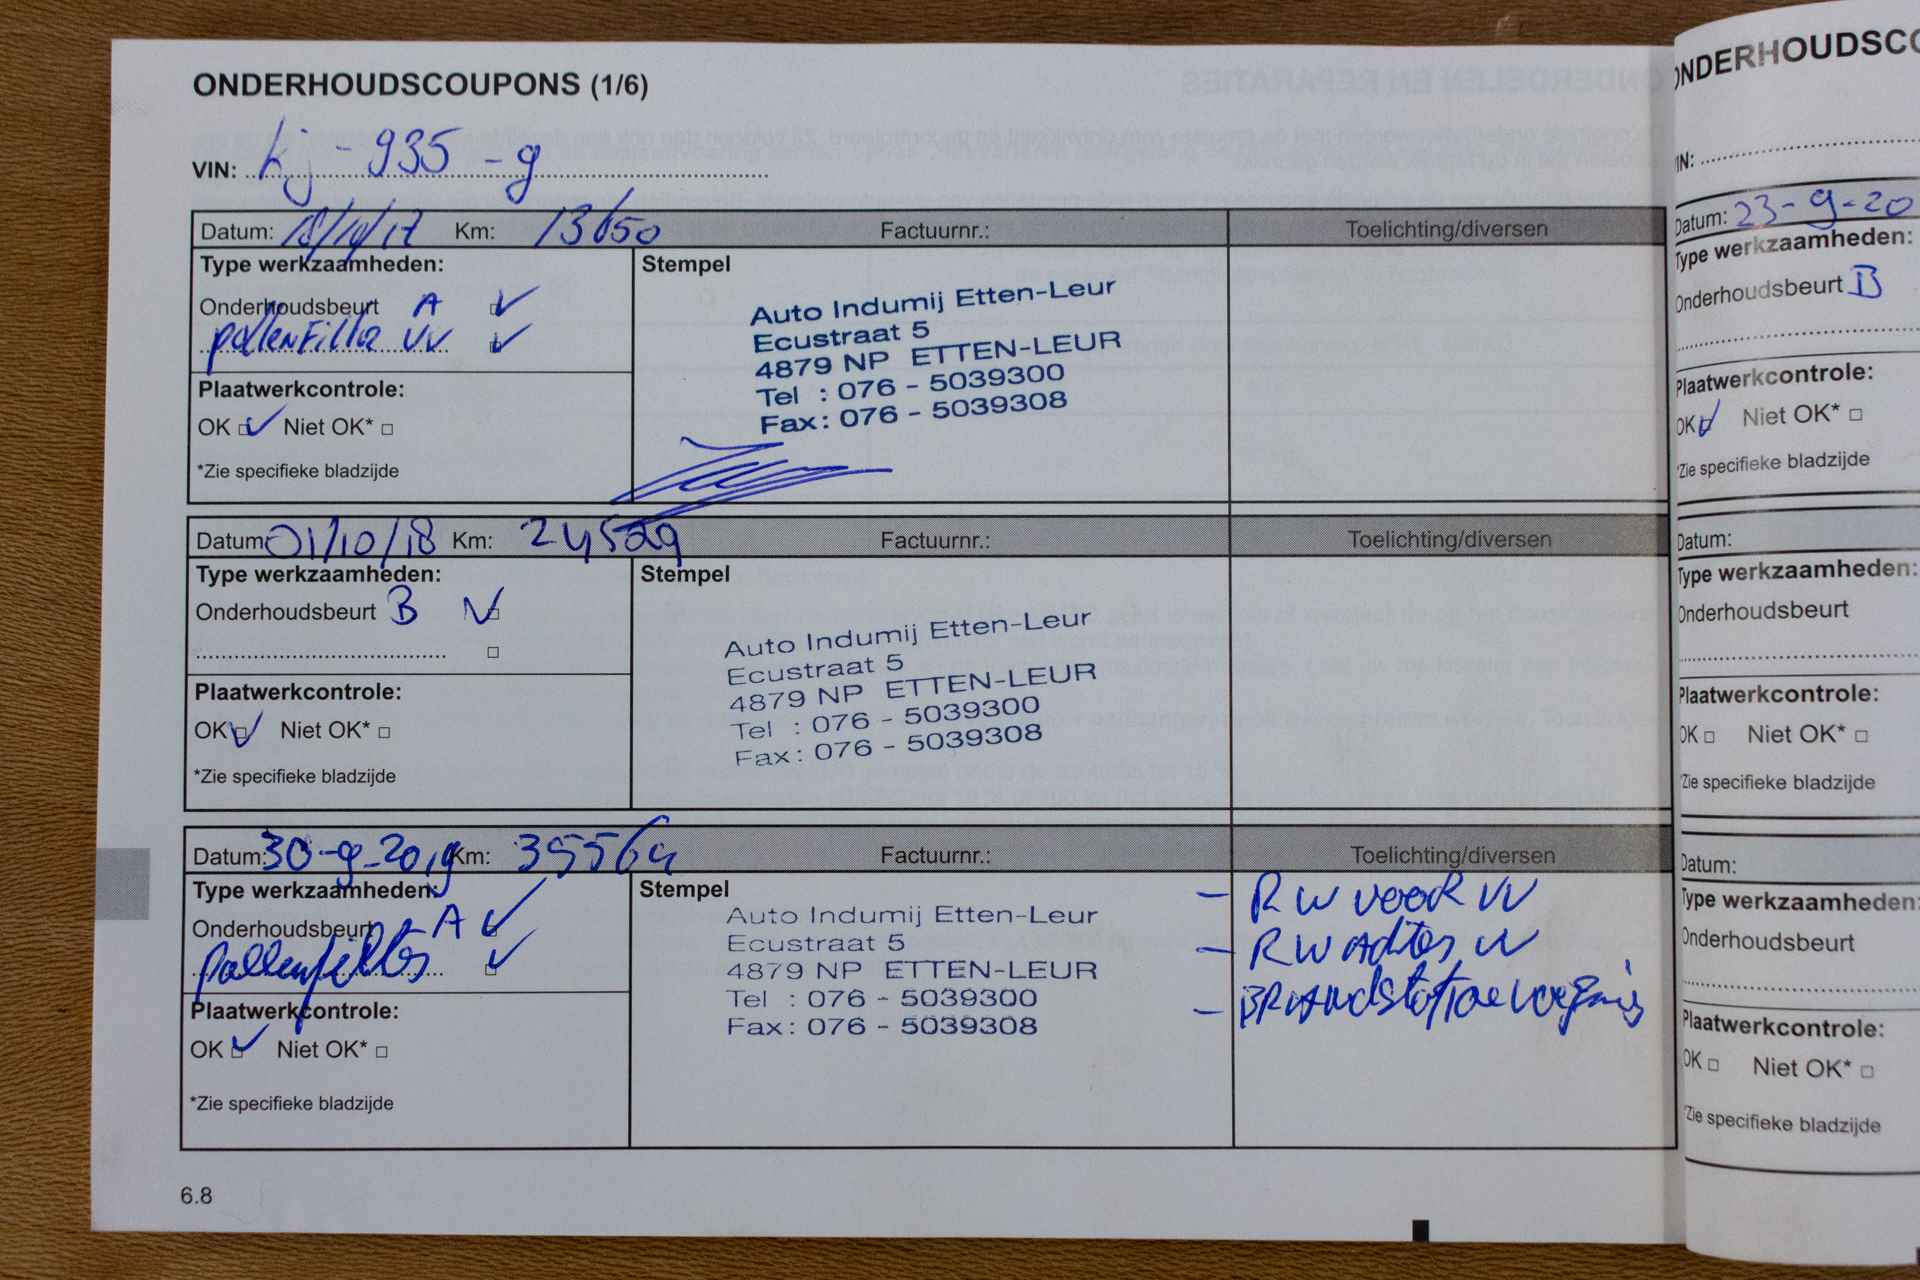 ONDERHOUDSCOUPONS (1/6)
VIN: kj - 935 - g
Datum: 18/10/17 Km: 13650 Factuurnr.: Toelichting/diversen
Type werkzaamheden: Stempel
Onderhoudsbeurt A
pollenfilter VV
Plaatwerkcontrole:
OK Niet OK*
*Zie specifieke bladzijde
Auto Indumij Etten-Leur
Ecustraat 5
4879 NP ETTEN-LEUR
Tel : 076 - 5039300
Fax: 076 - 5039308
Datum: 01/10/18 Km: 24529 Factuurnr.: Toelichting/diversen
Type werkzaamheden: Stempel
Onderhoudsbeurt B
Plaatwerkcontrole:
OK Niet OK*
*Zie specifieke bladzijde
Auto Indumij Etten-Leur
Ecustraat 5
4879 NP ETTEN-LEUR
Tel : 076 - 5039300
Fax: 076 - 5039308
Datum: 30-9-2019 Km: 35564 Factuurnr.: Toelichting/diversen
Type werkzaamheden: Stempel
Onderhoudsbeurt A
pollenfilter
Plaatwerkcontrole:
OK Niet OK*
*Zie specifieke bladzijde
Auto Indumij Etten-Leur
Ecustraat 5
4879 NP ETTEN-LEUR
Tel : 076 - 5039300
Fax: 076 - 5039308
- RW voor VV
- RW Achter VV
-
6.8
ONDERHOUDSCO
VIN:
Datum: 23-9-20
Type werkzaamheden:
Onderhoudsbeurt B
Plaatwerkcontrole:
OK Niet OK*
*Zie specifieke bladzijde
Datum:
Type werkzaamheden:
Onderhoudsbeurt
Plaatwerkcontrole:
OK Niet OK*
*Zie specifieke bladzijde
Datum:
Type werkzaamheden:
Onderhoudsbeurt
Plaatwerkcontrole:
OK Niet OK*
*Zie specifieke bladzijde